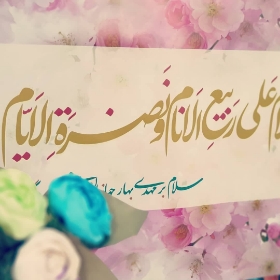 علی رَبیعِ الاَنامِ وَ نَضرَةِ الاَیّام
سلام بر مهدی بهار